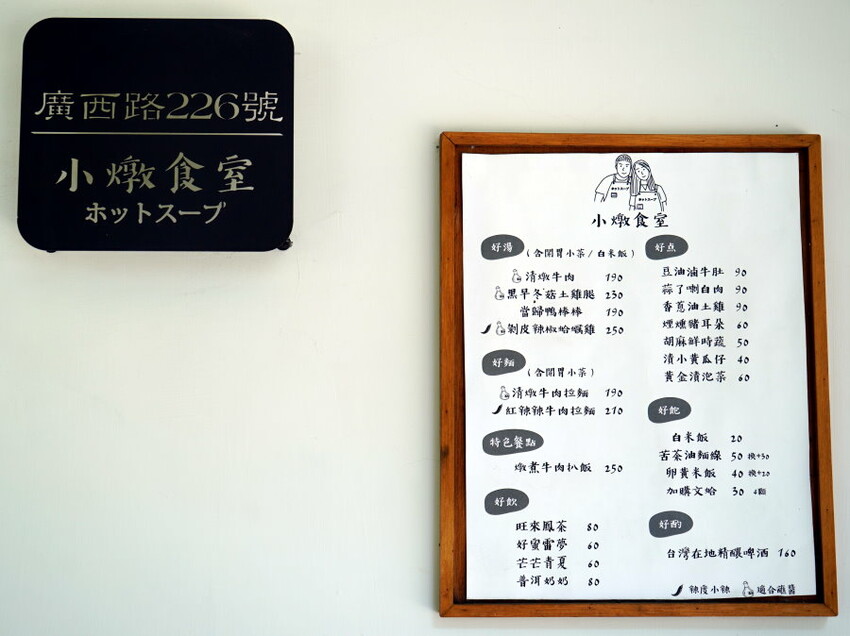 廣西路226號
小燉食室
ホットスープ
ホットスープ
小燉食室
好湯(含開胃小菜/白米飯)
清燉牛肉 190
黑早冬菇土雞腿 230
當歸鴨棒棒 190
剝皮辣椒蛤蠣雞 250
好麵(含開胃小菜)
清燉牛肉拉麵 190
紅辣辣牛肉拉麵 210
特色餐點
燉煮牛肉扒飯 250
好飲
旺來鳳茶 80
好蜜雷夢 60
芒芒青夏 60
普洱奶奶 80
好点
豆油滷牛肚 90
蒜了喇白肉 90
香蔥油土雞 90
煙燻豬耳朵 60
胡麻鮮時蔬 50
漬小黃瓜仔 40
黃金漬泡菜 60
好飽
白米飯 20
苦茶油麵線 50 換+30
卵黃米飯 40 換+20
加購文蛤 30 4顆
好酌
台灣在地精釀啤酒 160
辣度小辣 適合蘸醬